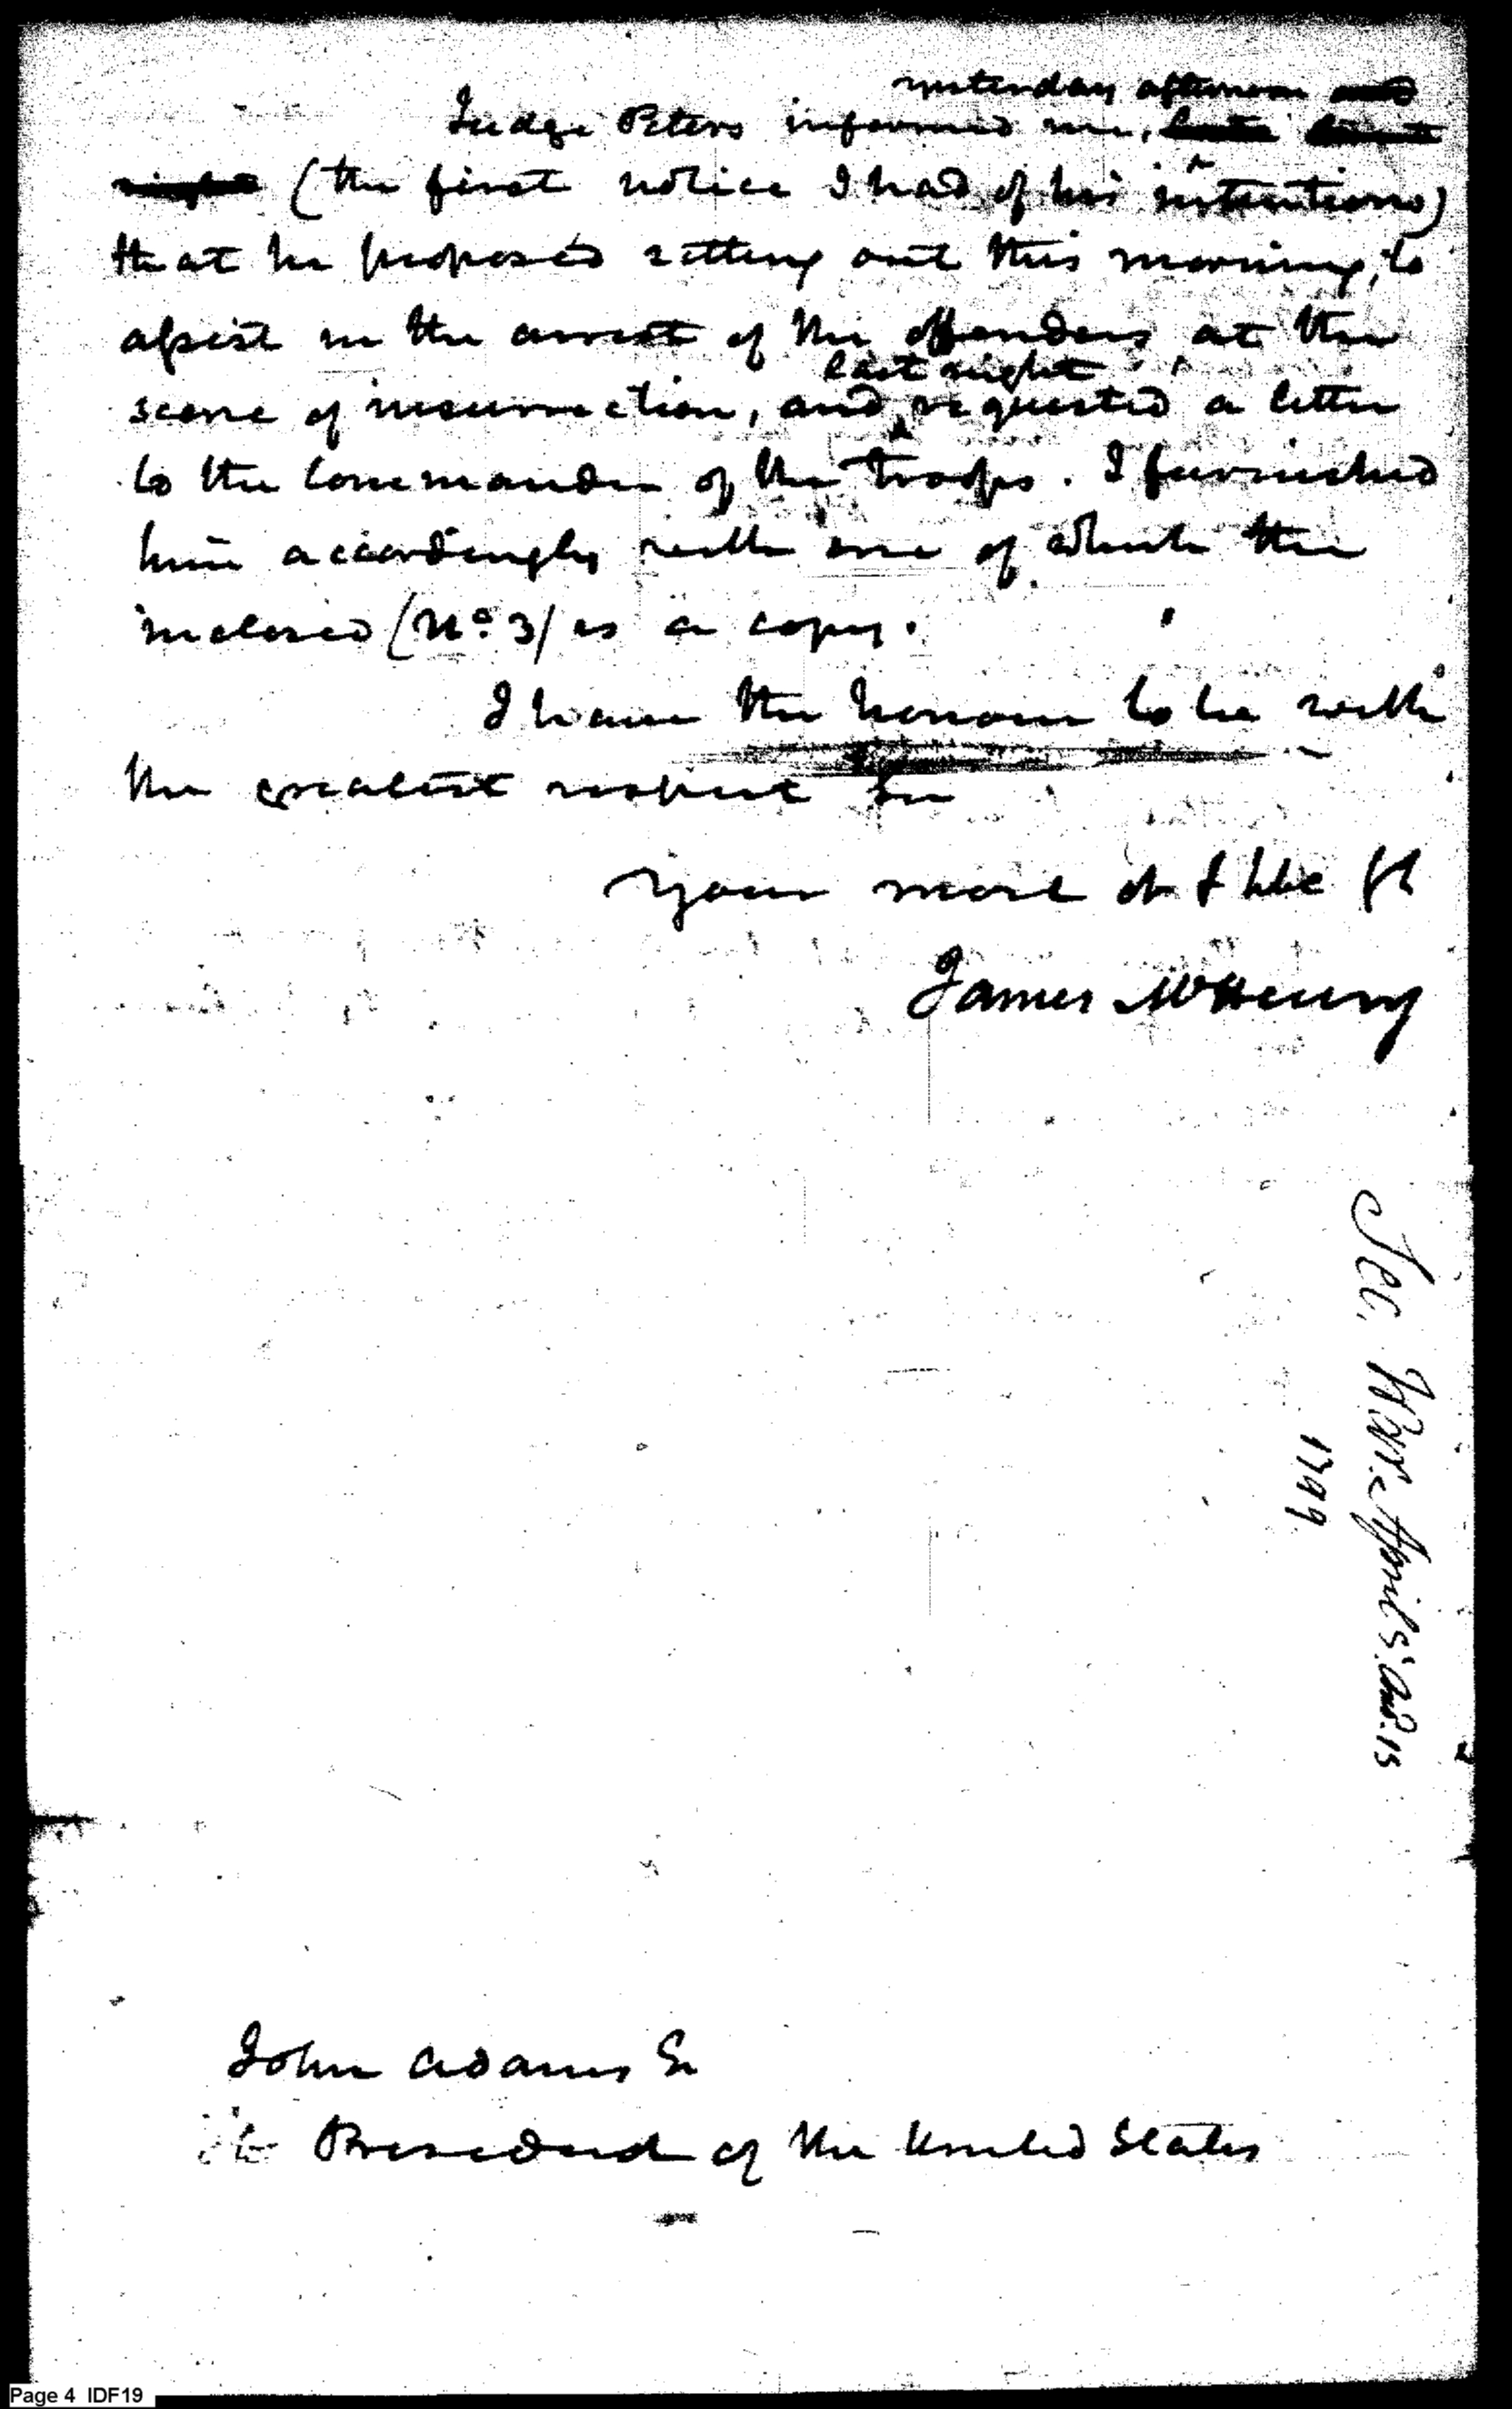 yesterday afternoon
Judge Peters informed me,
night (the first notice I had of his intentions)
that he proposed setting out this morning, to
assist in the arrest of the offenders at the
last night
scene of insurrection, and requested a letter
to the Commander of the troops. I furnished
him accordingly with one of which the
inclosed (No. 3) is a copy.
I have the honour to be with
the greatest respect Sir
your most ob & hble st
James McHenry
Sec. War. April 5. ansd. 13
1799
John Adams Esr
President of the United States
Page 4 IDF19